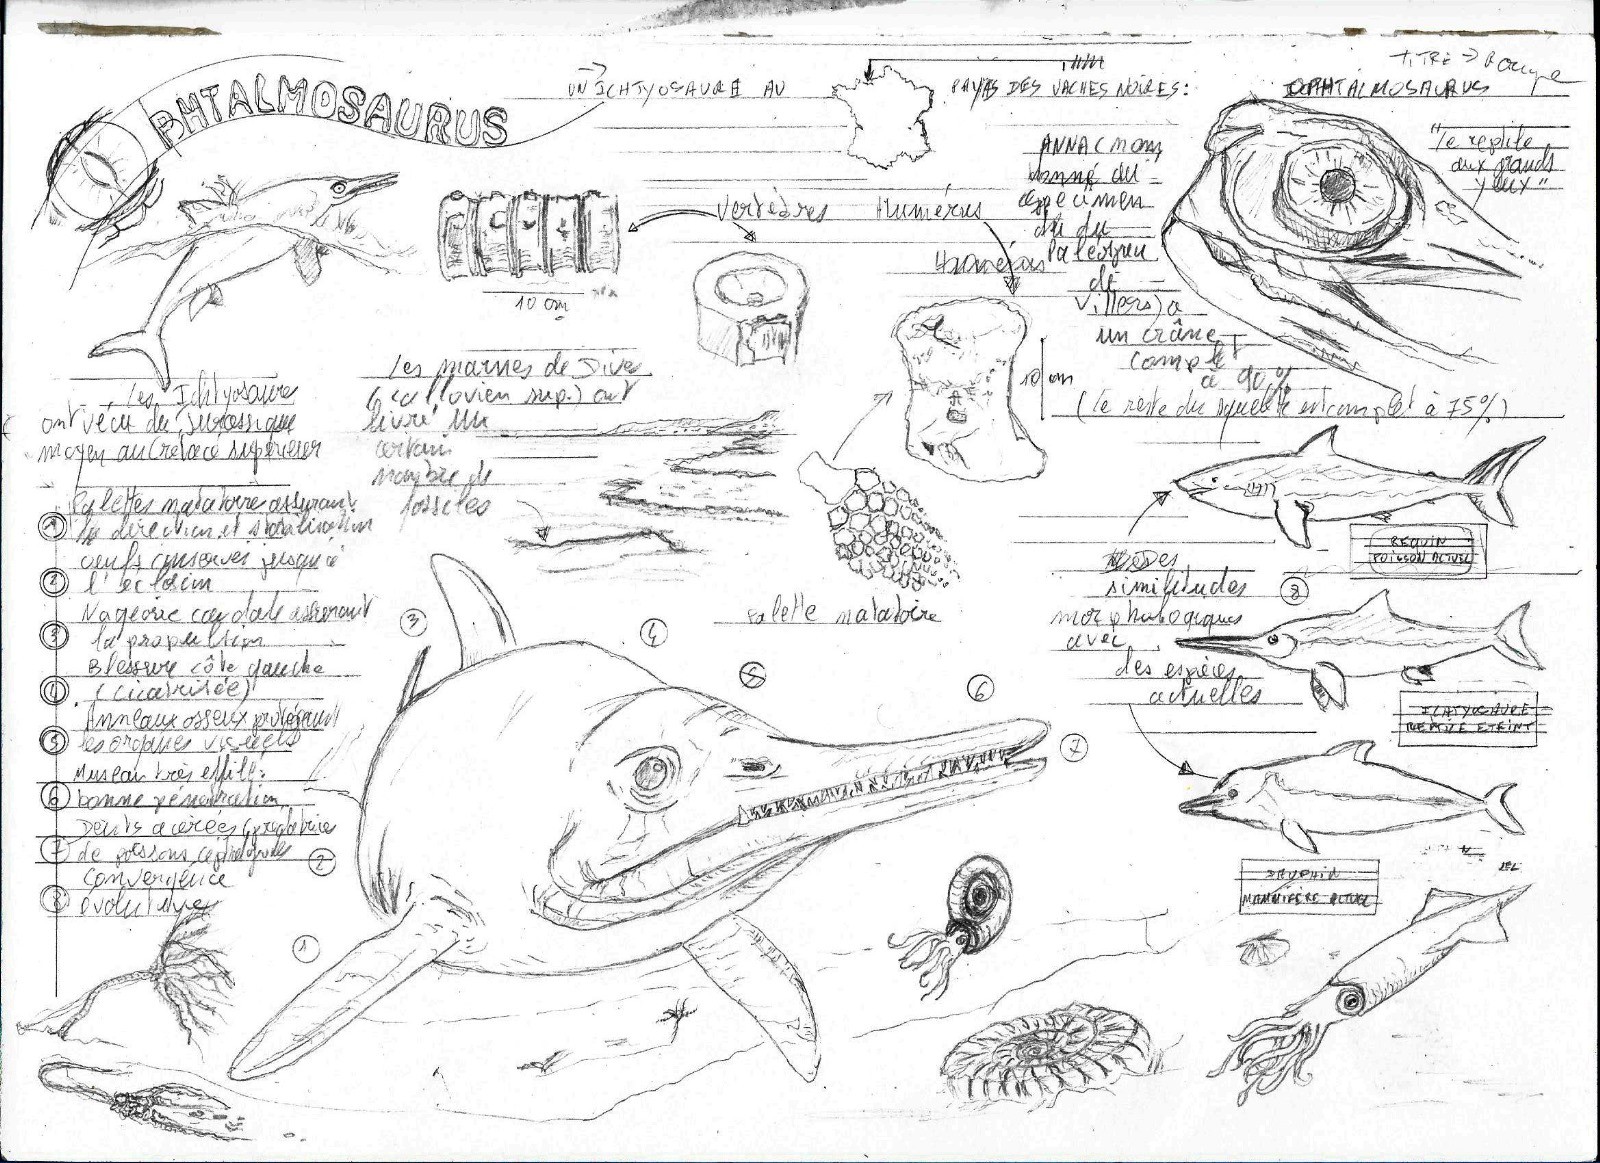 OPHTALMOSAURUS
UN ICHTYOSAURE AU
PAYS DES VACHES NOIRES:
TITRE → Rouge
OPHTALMOSAURUS
"le reptile
aux grands
yeux"
ANNA (nom
donné au
spécimen
du
Paléospace
de
Villers) a
un crâne
complet
à 90%
(le reste du squelette est complet à 75%)
Vertèbres
Humérus
Humérus
10 cm
10 cm
Les Ichtyosaures
ont vécu du Jurassique
moyen au Crétacé supérieur
Les marnes de Dives
(callovien sup.) ont
livré un
certain
nombre de
fossiles
Palettes natatoire assurant
1 la direction et stabilisation
oeufs conservés jusqu'à
2 l'éclosion
Nageoire caudale assurant
3 la propulsion
Blessure côté gauche
4 (cicatrisée)
Anneaux osseux protégeant
5 les organes visuels
Museau très effilé:
6 bonne pénétration
Dents acérées (prédatrices
7 de poissons, céphalopodes
Convergence
8 évolutive
Palette natatoire
Des
similitudes
morphologiques
avec
des espèces
actuelles
REQUIN
POISSON ACTUEL
8
ICHTYOSAURE
REPTILE ETEINT
DAUPHIN
MAMMIFÈRE ACTUEL
3
4
5
6
7
2
1